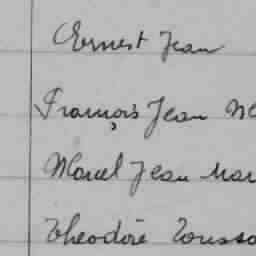 Ernest Jean
François Jean
Marcel Jean
Théodore